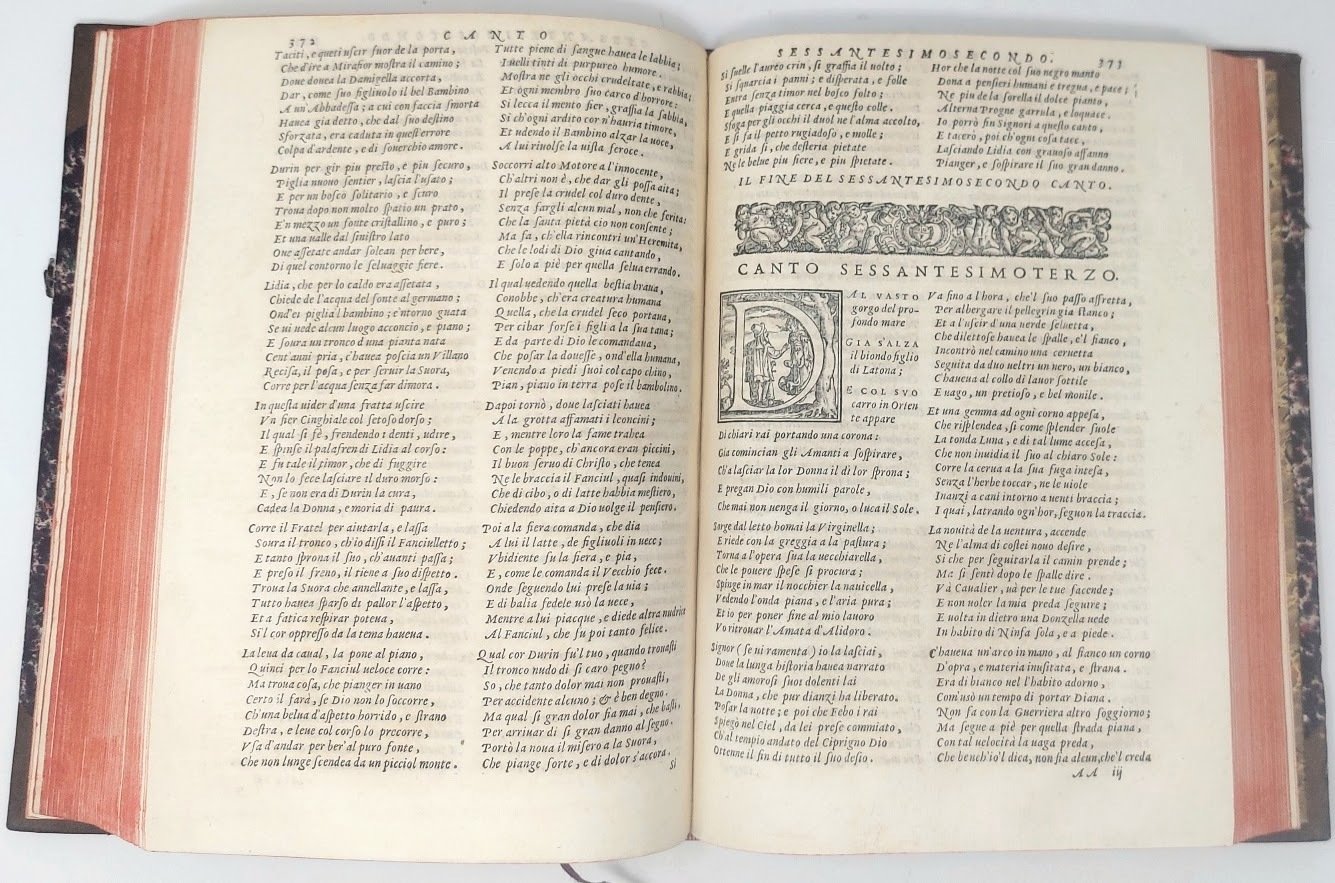 372 CANTO
Taciti, e queti uscir fuor de la porta,
Che d'ire a Mirafior mostra il camino;
Doue douea la Damigella accorta,
Dar, come suo figliuolo il bel Bambino
A un'Abbadessa; a cui con faccia smorta
Hauea gia detto, che dal suo destino
Sforzata, era caduta in quest'errore
Colpa d'ardente, e di souerchio amore.
Durin per gir piu presto, e piu securo,
Piglia nuouo sentier, lascia l'usato;
E per un bosco solitario, e scuro
Troua dopo non molto spatio un prato,
E'n mezzo un fonte cristallino, e puro;
Et una ualle dal sinistro lato
Oue assetate andar solean per bere,
Di quel contorno le seluaggie fiere.
Lidia, che per lo caldo era assetata,
Chiede de l'acqua del fonte al germano;
Ond'ei piglia'l bambino; e'ntorno guata
Se ui uede alcun luogo acconcio, e piano;
E soura un tronco d'una pianta nata
Cent'anni pria, c'hauea poscia un Villano
Recisa, il posa, e per seruir la Suora,
Corre per l'acqua senza far dimora.
In questa uider d'una fratta uscire
Vn fier Cinghiale col setoso dorso;
Il qual si fè, frendendo i denti, udire,
E spinse il palafren di Lidia al corso:
E fu tale il timor, che di fuggire
Non lo fece lasciare il duro morso:
E, se non era di Durin la cura,
Cadea la Donna, e moria di paura.
Corre il Fratel per aiutarla, e lassa
Soura il tronco, ch'io dissi il Fanciulletto;
E tanto sprona il suo, ch'auanti passa;
E preso il freno, il tiene a suo dispetto.
Troua la Suora che annellante, e lassa,
Tutto hauea sparso di pallor l'aspetto,
Et a fatica respirar poteua,
Si'l cor oppresso da la tema haueua.
La leua da caual, la pone al piano,
Quinci per lo Fanciul ueloce corre:
Ma troua cosa, che pianger in uano
Certo il farà, se Dio non lo soccorre,
Ch'una belua d'aspetto horrido, e strano
Destra, e leue col corso lo precorre,
Vsa d'andar per ber'al puro fonte,
Che non lunge scendea da un picciol monte.
Tutte piene di sangue hauea le labbia;
I uelli tinti di purpureo humore.
Mostra ne gli occhi crudeltate, e rabbia;
Et ogni membro suo carco d'horrore:
Si lecca il mento fier, graffia la sabbia,
Si ch'ogni ardito cor n'hauria timore,
Et udendo il Bambino alzar la uoce,
A lui riuolse la uista feroce.
Soccorri alto Motore a l'innocente,
Ch'altri non è, che dar gli possa aita;
Il prese la crudel col duro dente,
Senza fargli alcun mal, non che ferita:
Che la santa pietà cio non consente;
Ma fa, ch'ella rincontri un'Heremita,
Che le lodi di Dio giua cantando,
E solo a piè per quella selua errando.
Il qual uedendo quella bestia braua,
Conobbe, ch'era creatura humana
Quella, che la crudel seco portaua,
Per cibar forse i figli a la sua tana;
E da parte di Dio le comandaua,
Che posar la douesse, ond'ella humana,
Venendo a piedi suoi col capo chino,
Pian, piano in terra pose il bambolino.
Dapoi tornò, doue lasciati hauea
A la grotta affamati i leoncini;
E, mentre loro la fame trahea
Con le poppe, ch'ancora eran piccini,
Il buon seruo di Christo, che tenea
Ne le braccia il Fanciul, quasi indouini,
Che di cibo, o di latte habbia mestiero,
Chiedendo aita a Dio uolge il pensiero.
Poi a la fiera comanda, che dia
A lui il latte, de figliuoli in uece;
Vbidiente fu la fiera, e pia,
E, come le comanda il Vecchio fece.
Onde seguendo lui prese la uia;
E di balia fedele usò la uece,
Mentre a lui piacque, e diede altra nudrice
Al Fanciul, che fu poi tanto felice.
Qual cor Durin fu'l tuo, quando trouasti
Il tronco nudo di si caro pegno?
So, che tanto dolor mai non prouasti,
Per accidente alcuno; & è ben degno.
Ma qual si gran dolor fia mai, che basti,
Per arriuar di si gran danno al segno.
Portò la noua il misero a la Suora,
Che piange forte, e di dolor s'accora.
Si
SESSANTESIMOSECONDO. 373
Si suelle l'aureo crin, si graffia il uolto;
Si squarcia i panni; e disperata, e folle
Entra senza timor nel bosco folto;
E quella piaggia cerca, e questo colle.
Sfoga per gli occhi il duol ne l'alma accolto,
E si fa il petto rugiadoso, e molle;
E grida si, che desteria pietate
Ne le belue piu fiere, e piu spietate.
Hor che la notte col suo negro manto
Dona a pensieri humani e tregua, e pace;
Ne piu de la sorella il dolce pianto,
Alterna Progne garrula, e loquace.
Io porrò fin Signori a questo canto,
E tacerò, poi ch'ogni cosa tace,
Lasciando Lidia con grauoso affanno
Pianger, e sospirare il suo gran danno.
IL FINE DEL SESSANTESIMOSECONDO CANTO.
CANTO SESSANTESIMOTERZO.
DAL VASTO
gorgo del pro-
fondo mare
GIA S'ALZA
il biondo figlio
di Latona;
E COL SVO
carro in Orien
te appare
Di chiari rai portando una corona:
Gia comincian gli Amanti a sospirare,
Ch'a lasciar la lor Donna il dì lor sprona;
E pregan Dio con humili parole,
Che mai non uenga il giorno, o luca il Sole.
Sorge dal letto homai la Virginella;
E riede con la greggia a la pastura;
Torna a l'opera sua la uecchiarella,
Che le pouere spese si procura;
Spinge in mar il nocchier la nauicella,
Vedendo l'onda piana, e l'aria pura;
Et io per poner fine al mio lauoro
Vo ritrouar l'Amata d'Alidoro.
Signor (se ui ramenta) io la lasciai,
Doue la lunga historia hauea narrato
De gli amorosi suoi dolenti lai
La Donna, che pur dianzi ha liberato.
Posar la notte; e poi che Febo i rai
Spiegò nel Ciel, da lei prese commiato,
Ch'al tempio andato del Ciprigno Dio
Ottenne il fin di tutto il suo desio.
Va fino a l'hora, che'l suo passo affretta,
Per albergare il pellegrin gia stanco;
Et a l'uscir d'una uerde seluetta,
Che dilettose hauea le spalle, e'l fianco,
Incontrò nel camino una ceruetta
Seguita da duo ueltri un nero, un bianco,
C'haueua al collo di lauor sottile
E uago, un pretioso, e bel monile.
Et una gemma ad ogni corno appesa,
Che risplendea, si come splender suole
La tonda Luna, e di tal lume accesa,
Che non inuidia il suo al chiaro Sole:
Corre la cerua a la sua fuga intesa,
Senza l'herbe toccar, ne le uiole
Inanzi a cani intorno a uenti braccia;
I quai, latrando ogn'hor, seguon la traccia.
La nouità de la uentura, accende
Ne l'alma di costei nouo desire,
Si che per seguitarla il camin prende;
Ma si sentì dopo le spalle dire.
Và Caualier, uà per le tue facende;
E non uoler la mia preda seguire;
E uolta in dietro una Donzella uede
In habito di Ninfa sola, e a piede.
C'haueua un'arco in mano, al fianco un corno
D'opra, e materia inusitata, e strana.
Era di bianco nel l'habito adorno,
Com'usò un tempo di portar Diana.
Non fa con la Guerriera altro soggiorno;
Ma segue a piè per quella strada piana,
Con tal uelocità la uaga preda,
Che bench'io'l dica, non fia alcun, che'l creda
AA iij